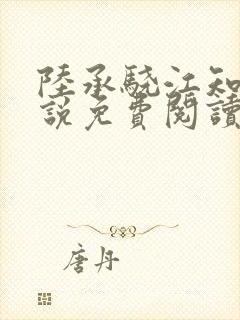 陸承驍江知
說免費閱讀
唐丹